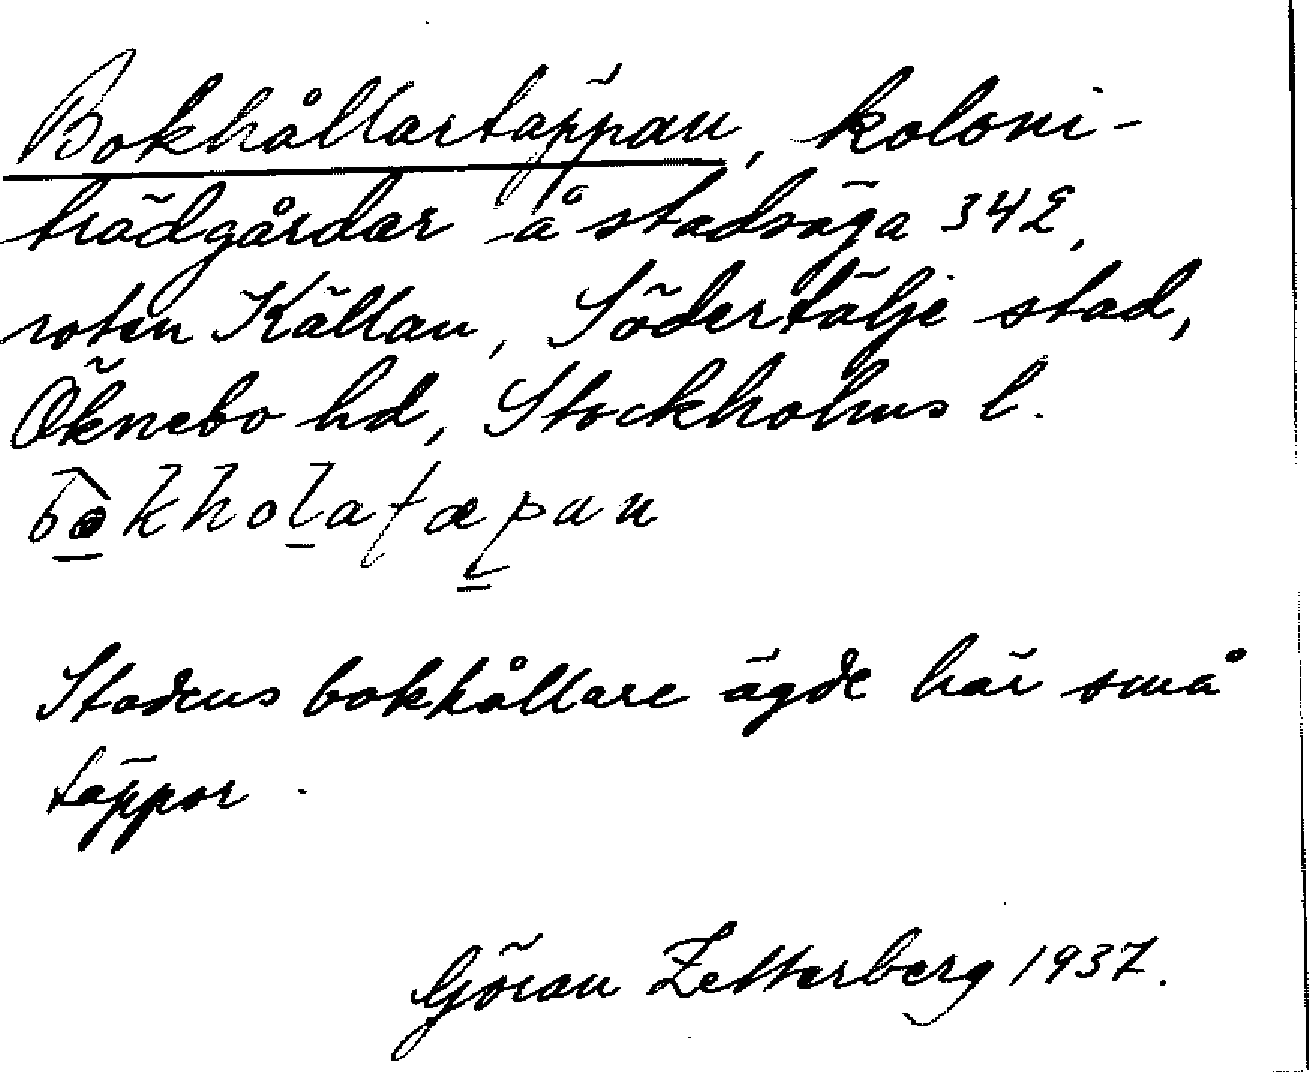 Bokhållartäppan, koloni-
trädgårdar å stadsäga 342,
roten Källan, Södertälje stad,
Öknebo hd, Stockholms l.
Stadens bokhållare ägde här små
täppor.
Göran Zetterberg 1937.